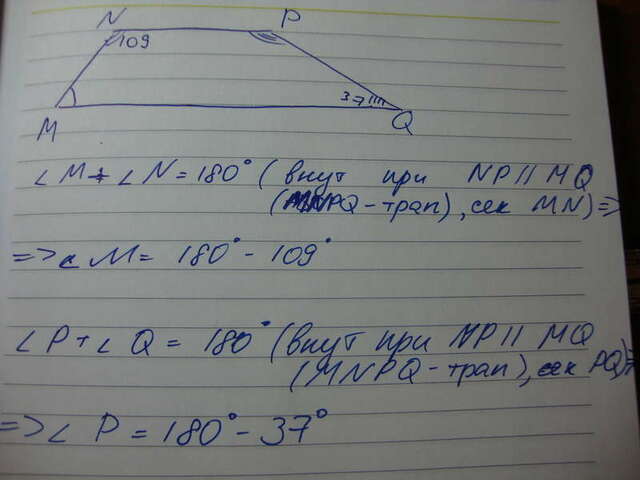 N P
109
37
M Q
∠M + ∠N = 180° (внут при NP || MQ
(MNPQ - трап), сек MN) =>
=> ∠M = 180° - 109°
∠P + ∠Q = 180° (внут при NP || MQ
(MNPQ - трап), сек PQ) =>
=> ∠P = 180° - 37°